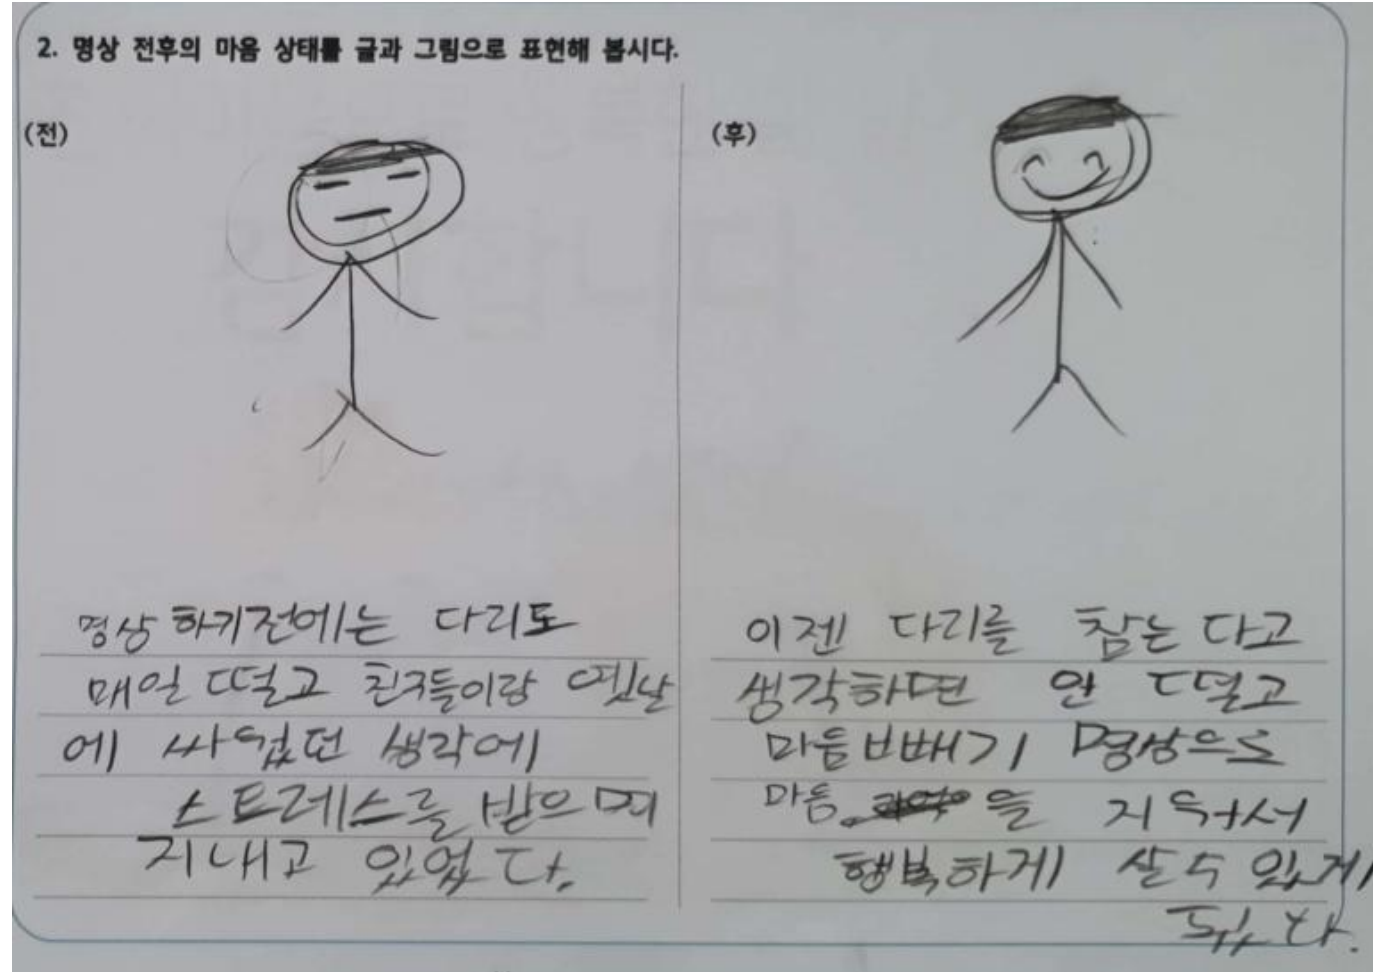 2. 명상 전후의 마음 상태를 글과 그림으로 표현해 봅시다.
(전)
명상 하기전에는 다리도
매일 떨고 친구들이랑 옛날
에 싸웠던 생각에
스트레스를 받으며
지내고 있었다.
(후)
이젠 다리를 참는 다고
생각하면 안 떨고
마음빼기 명상으로
마음 을 지워서
행복하게 살수 있게
됐다.